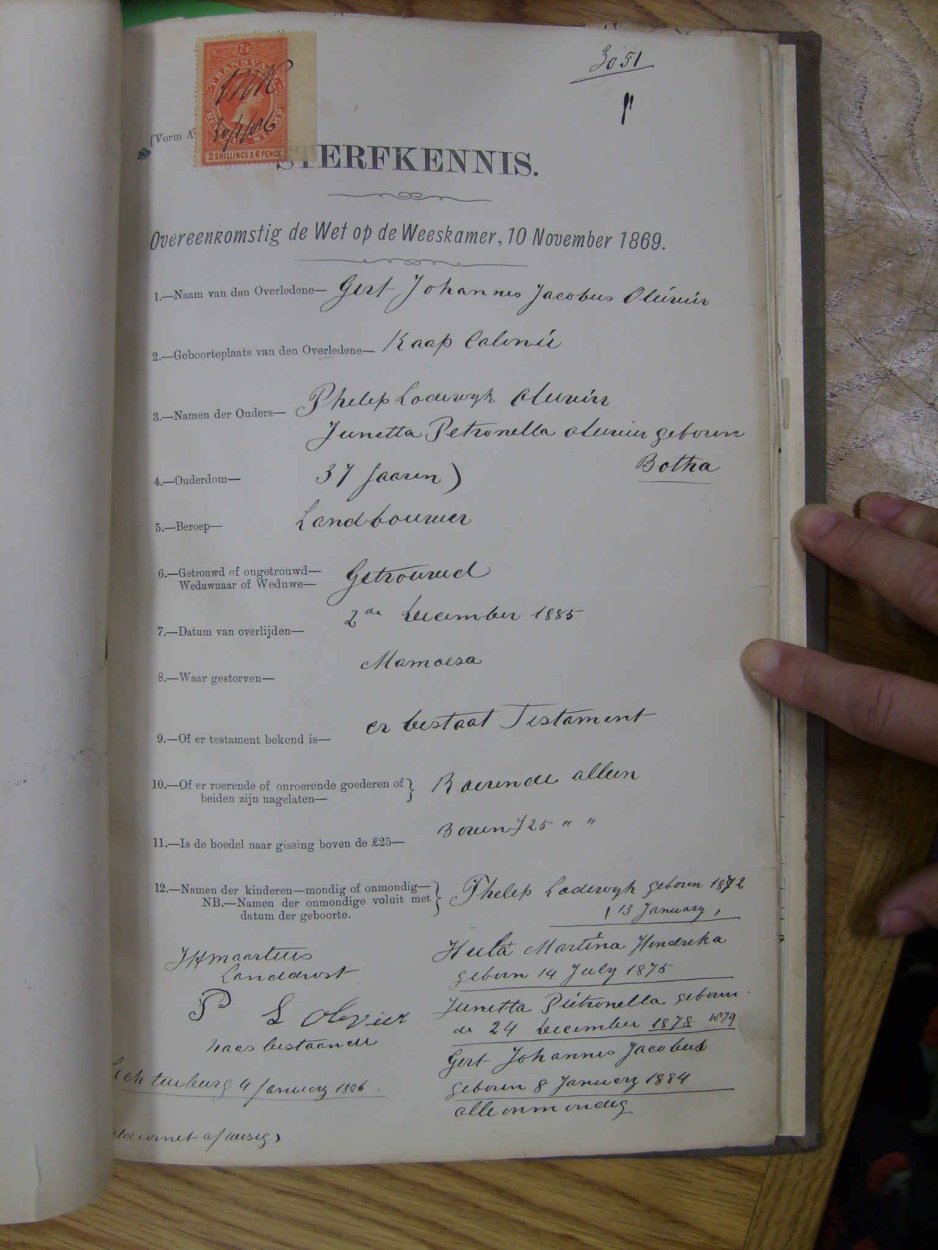 3051
TRANSVAAL
2 SHILLINGS & 6 PENCE
[Vorm A
STERFKENNIS.
Overeenkomstig de Wet op de Weeskamer, 10 November 1869.
1.—Naam van den Overledene— Gert Johannes Jacobus Olivier
2.—Geboorteplaats van den Overledene— Kaap Colonie
3.—Namen der Ouders— Phelep Lodewyk Olivier
Junetta Petronella Olivier geboren
Botha
4.—Ouderdom— 37 Jaaren)
5.—Beroep— Landbouwer
6.—Getrouwd of ongetrouwd—
Weduwnaar of Weduwe— Getrouwd
7.—Datum van overlijden— 2de December 1885
8.—Waar gestorven— Mamoesa
9.—Of er testament bekend is— er bestaat Testament
10.—Of er roerende of onroerende goederen of
beiden zijn nagelaten— Roerende alleen
11.—Is de boedel naar gissing boven de £25— Boven £25 " "
12.—Namen der kinderen—mondig of onmondig—
NB.—Namen der onmondige voluit met
datum der geboorte.
Phelep Lodewyk geboren 1872
13 January
Martina Hendrika
geboren 14 July 1875
Junetta Pietronella geboren
de 24 December 1878 1879
Gert Johannes Jacobus
geboren 8 January 1884
alle onmondig
Landdrost
P L Olivier
naasbestaande
Lichtenburg 4 January 1886.